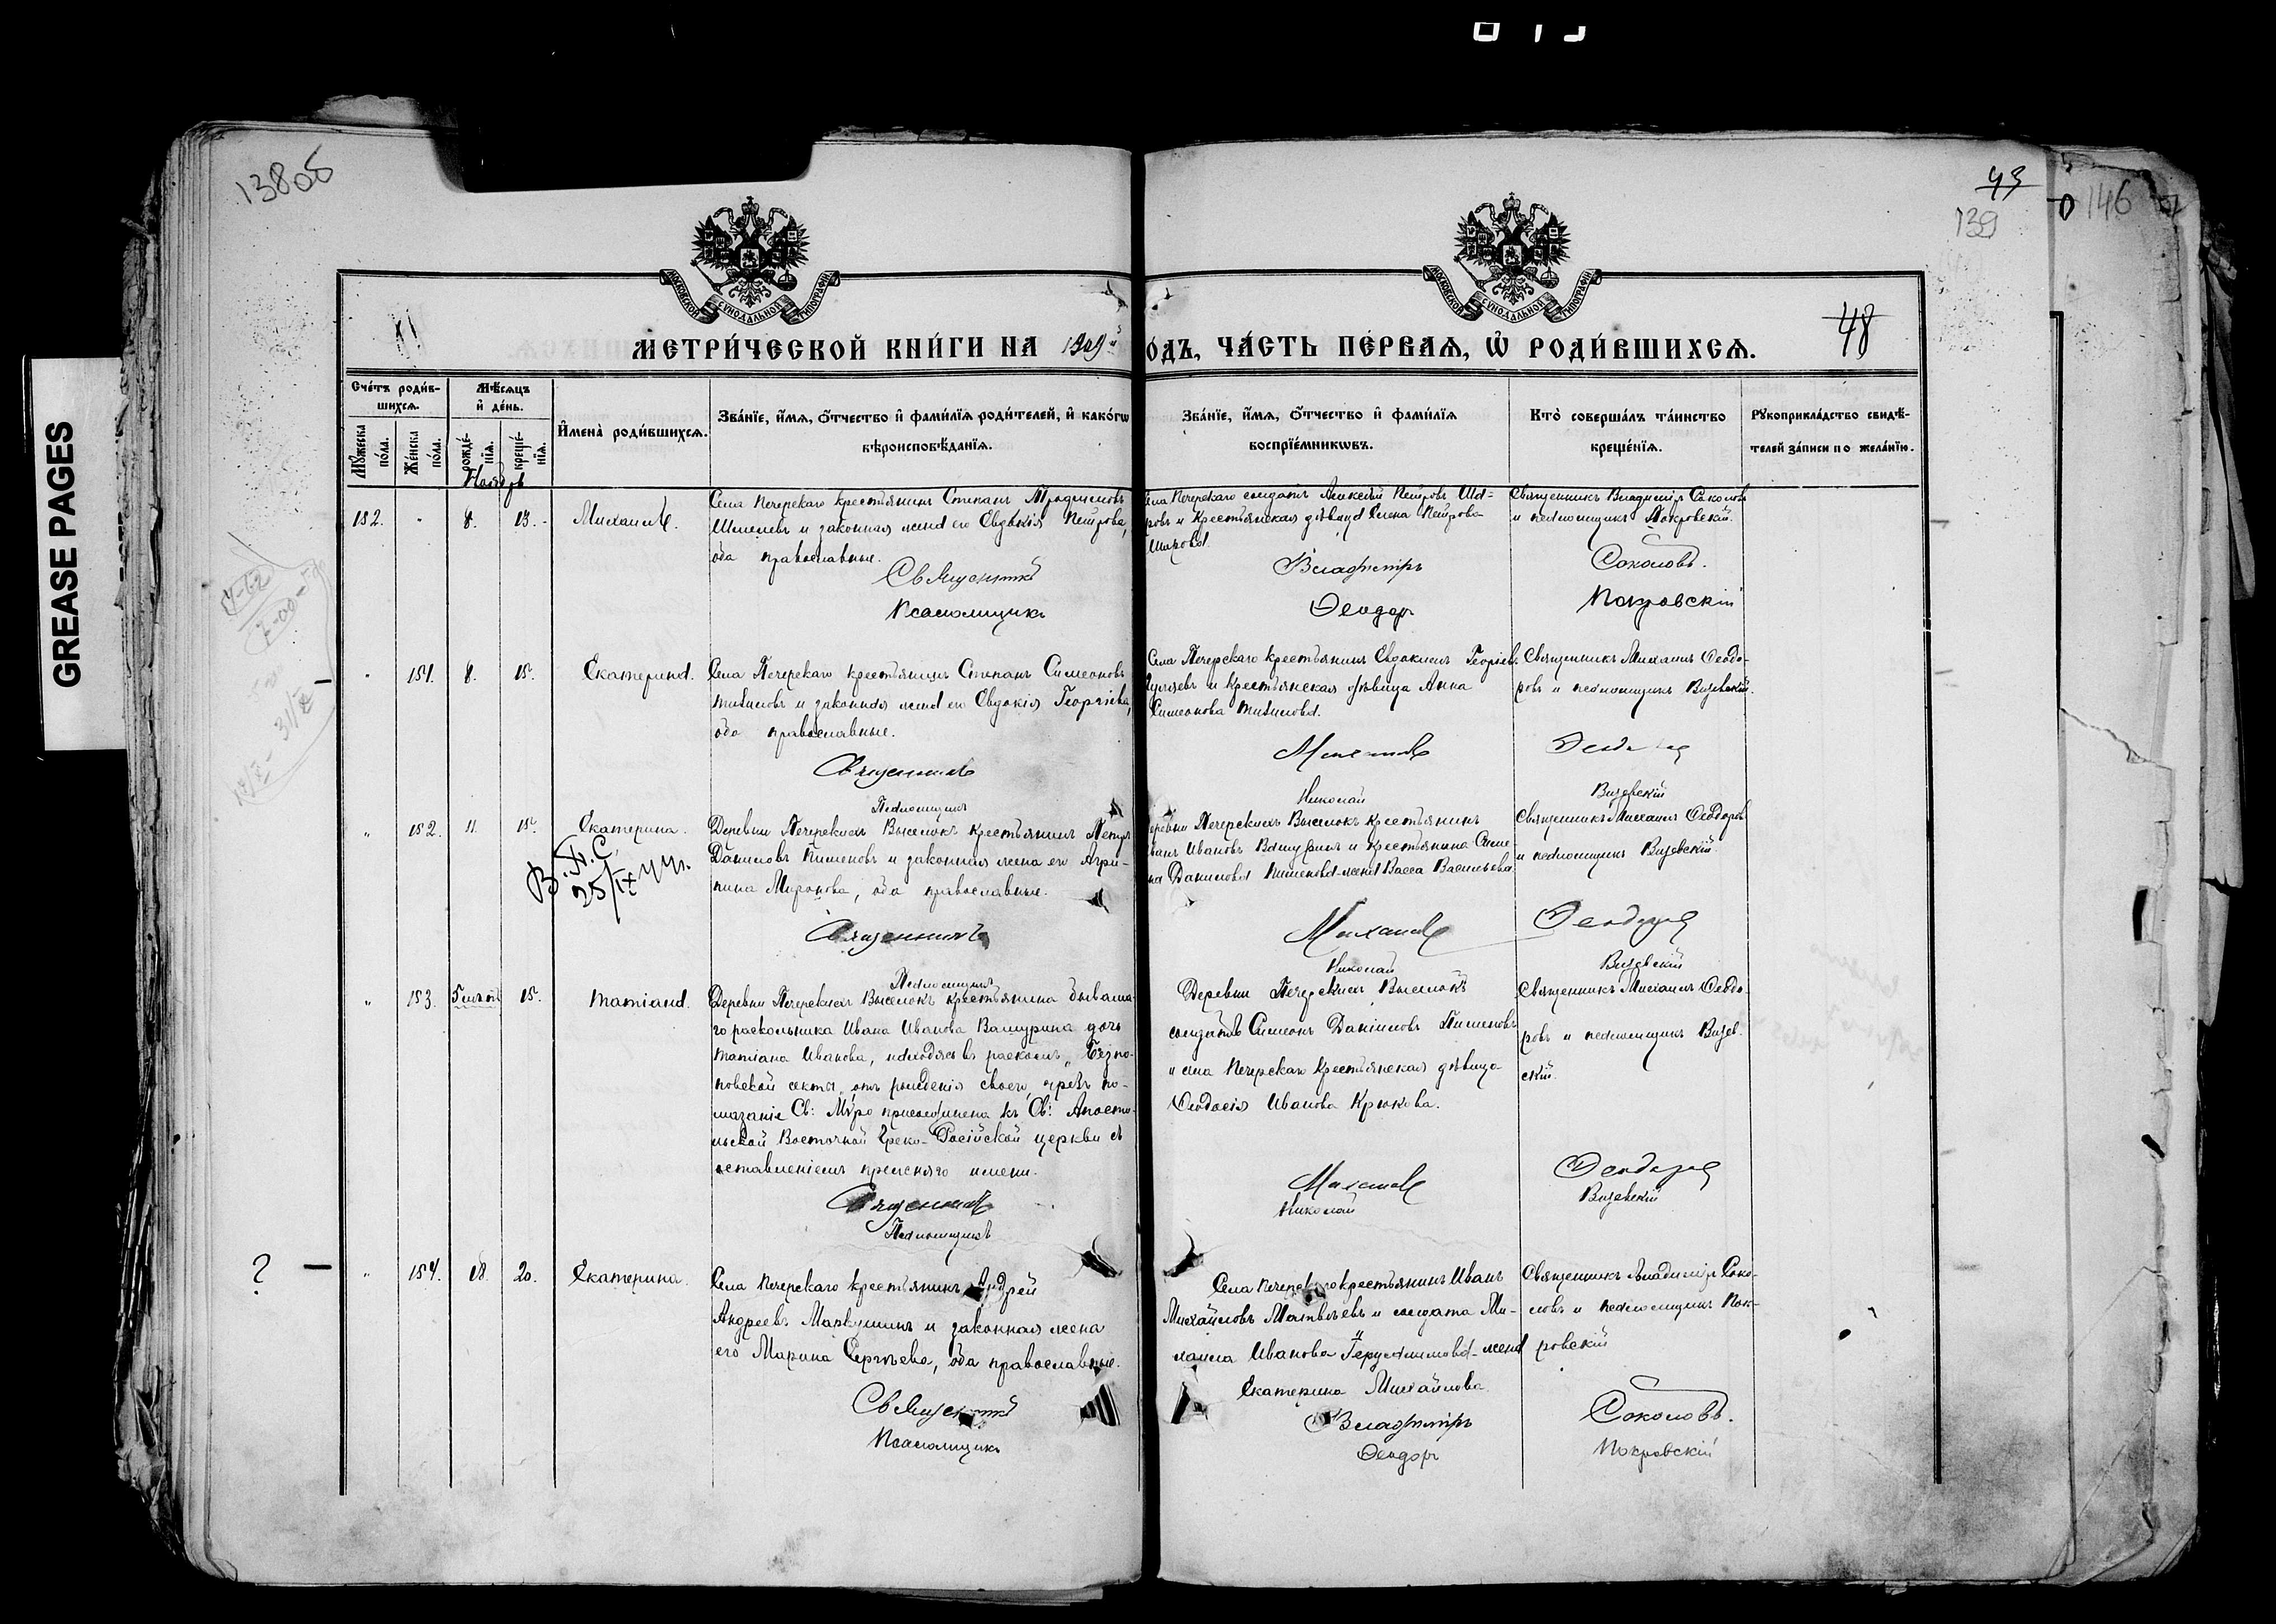 GREASE PAGES
138об
43
139
146
48
МОСКОВСКОЙ СѴНОДАЛЬНОЙ ТИПОГРАФІИ
МОСКОВСКОЙ СѴНОДАЛЬНОЙ ТИПОГРАФІИ
МЕТРИ́ЧЕСКОЙ КНИ́ГИ НА 1909й
ОДЪ, ЧА́СТЬ ПЕ́РВАѦ, Ѡ҆ РОДИ́ВШИХСѦ.
Сче́тъ роди́в-
шихсѧ.
Мѣ́сѧцъ
и҆ де́нь.
Мꙋ́жеска по́ла.
Же́нска по́ла.
рожде́-нїѧ.
креще́-нїѧ.
И҆мена̀ роди́вшихсѧ.
Зва́нїе, и҆́мѧ, ѻ҆́тчество и҆ фами́лїѧ роди́телей, и҆ како́гѡ
вѣроисповѣ́данїѧ.
Зва́нїе, и҆́мѧ, ѻ҆́тчество и҆ фами́лїѧ
воспрїе́мникѡвъ.
Кто̀ соверша́лъ та́инство
креще́нїѧ.
Рꙋкоприкла́дство свидѣ́-
телей за́писи по жела́нїю.
Ноябрь
152. 8. 13. Михаилъ.
Села Печерскаго крестьянинъ Степанъ Трофимовъ
Шмелевъ и законная жена его Евдокія Петрова,
оба православные.
Священникъ
Псаломщикъ
Села Печерскаго солдатъ Алексѣй Петровъ Ша-
ровъ и крестьянская дѣвица Елена Петрова
Шарова.
Владиміръ
Ѳеодоръ
Священникъ Владиміръ Соколовъ
и псаломщикъ Покровскій.
Соколовъ.
Покровскій
151. 8. 15. Екатерина.
Села Печерскаго крестьянинъ Степанъ Симеоновъ
и законная жена его Евдокія Георгіева,
оба православные.
Священникъ
Псаломщикъ
Села Печерскаго крестьянинъ Евдокимъ Георгіевъ
и крестьянская дѣвица Анна
Симеонова
Михаилъ
Николай
Священникъ Михаилъ Ѳеодо-
ровъ и псаломщикъ
Ѳеодоровъ
152. 11. 15. Екатерина.
В.П.С.
25/IX 44г.
Деревни Печерскихъ Выселокъ крестьянинъ Петръ
Даниловъ Пименовъ и законная жена его Агри-
пина Миронова, оба православные.
Священникъ
Псаломщикъ
Деревни Печерскихъ Выселокъ крестьянинъ
Иванъ Ивановъ Вашуринъ и крестьянина Симе-
она Данилова Пименова жена Васса Васильева.
Михаилъ
Николай
Священникъ Михаилъ Ѳеодоровъ
и псаломщикъ
Ѳеодоровъ
153. 5 лѣтъ 15. Татіана.
Деревни Печерскихъ Выселокъ крестьянина бывша-
го раскольника Ивана Иванова Вашурина дочь
Татіана Иванова, находясь въ расколѣ „Безпо-
повской секты„ отъ рожденія своего, чрезъ по-
мазаніе Св: Мѵро присоединена къ Св: Апосто-
льской Восточной Греко-Россійской церкви съ
оставленіемъ прежняго имени.
Священникъ
Псаломщикъ
Деревни Печерскихъ Выселокъ
солдатъ Симеонъ Даніиловъ Пименовъ
и села Печерскаго крестьянская дѣвица
Ѳеодосія Иванова Крюкова.
Михаилъ
Николай
Священникъ Михаилъ Ѳеодо-
ровъ и псаломщикъ
скій.
Ѳеодоровъ
? 154. 18. 20. Екатерина.
Села Печерскаго крестьянинъ Андрей
Андреевъ Маркушинъ и законная жена
его Марина Сергѣева, оба православные.
Священникъ
Псаломщикъ
Села Печерскаго крестьянинъ Иванъ
Михайловъ Матвѣевъ и солдата Ми-
хаила Иванова Іерусалимова жена
Екатерина Михайлова.
Владиміръ
Ѳеодоръ
Священникъ Владиміръ Соко-
ловъ и псаломщикъ Пок-
ровскій
Соколовъ.
Покровскій